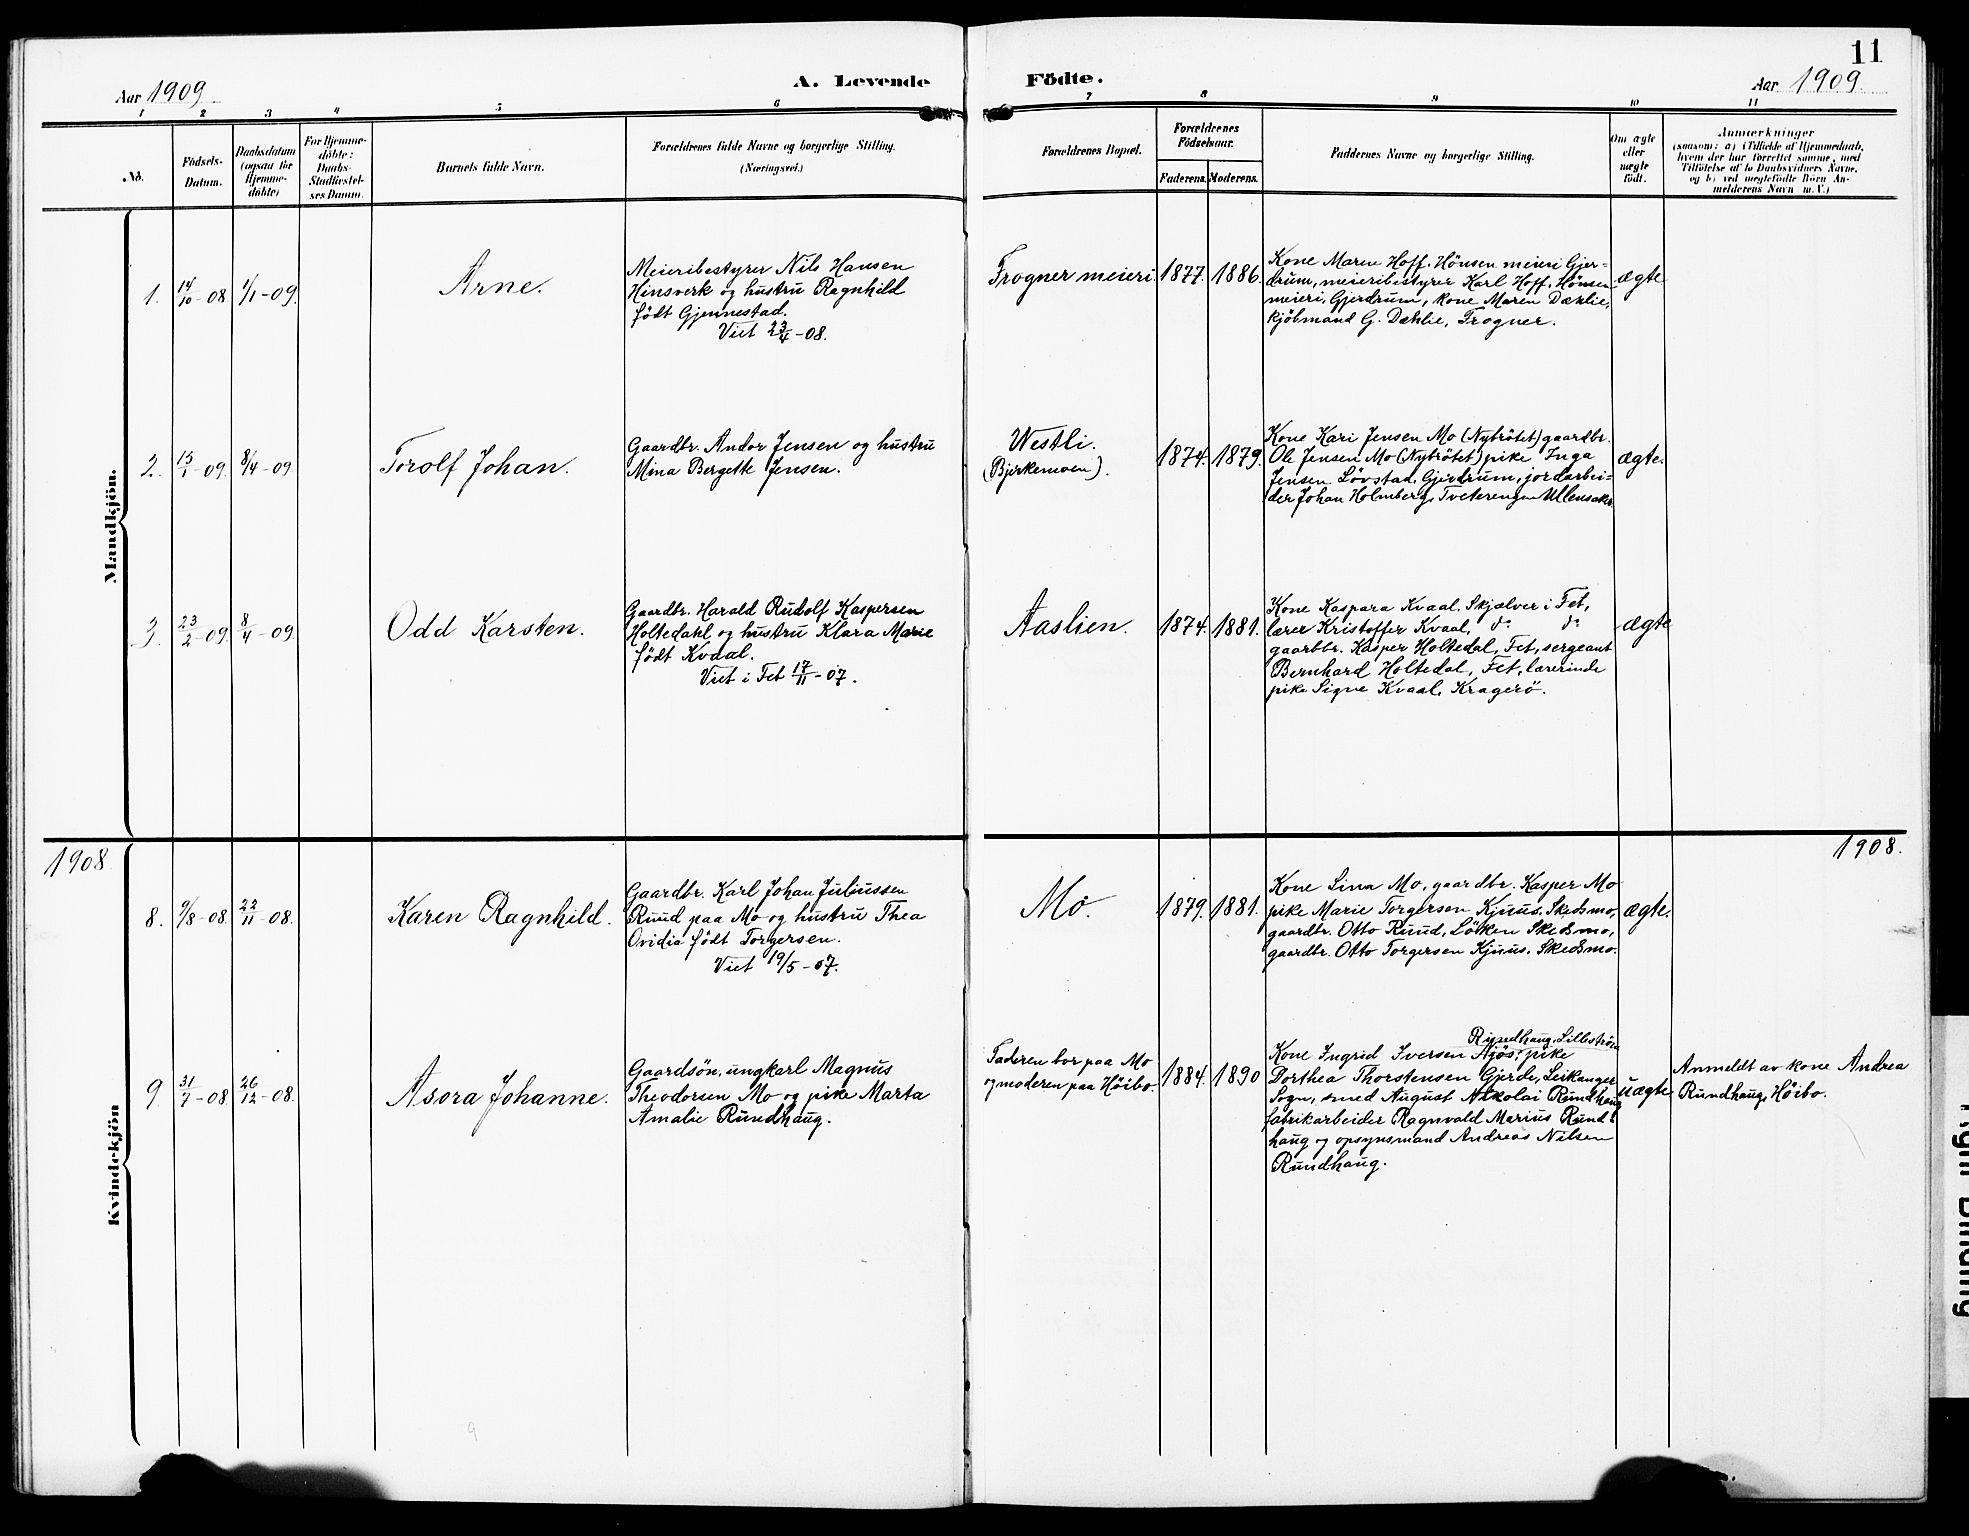 11
A. Levende Födte.
Aar 1909
Aar 1909
1 2 3 4 5 6 7 8 9 10 11
No.
Födsels-
Datum.
Daabsdatum
(ogsaa for
Hjemme-
döbte)
For Hjemme-
döbte:
Daabs-
Stadfæstel-
ses Datum.
Barnets fulde Navn.
Forældrenes fulde Navne og borgerlige Stilling.
(Næringsvei.)
Forældrenes Bopæl.
Forældrenes
Födselsaar.
Faderens. Moderens.
Faddernes Navne og borgerlige Stilling.
Om ægte
eller
uægte
født.
Anmærkninger
(saasom: a) i Tilfælde af Hjemmedaab,
hvem der har forrettet samme, med
Tilföielse af to Daabsvidners Navne,
og b) ved uegtefödte Börn An-
melderens Navn m. V.)
Mandkjön.
1.
14/10-08.
1/1-09.
Arne.
Meieribestyrer Nils Hansen
Hinsverk og hustru Ragnhild
født Gjennestad.
Viet 23/4-08.
Frogner meieri.
1877.
1886.
Kone Maren Hoff. Hönsen meieri Gjer-
drum, meieribestyrer Karl Hoff. Hönsen
meieri, Gjerdrum, kone Maren Dæhlie,
kjöbmand G. Dæhlie, Frogner.
ægte
2.
15/1-09.
8/4-09
Torolf Johan.
Gaardbr. Andor Jensen og hustru
Mina Bergette Jensen.
Westli.
(Bjerkemoen).
1874.
1879.
Kone Kari Jensen Mo (Nybrötet) gaardbr.
Ole Jensen Mo (Nybrötet) pike Inga
Jensen Lövstad, Gjerdrum, jordarbei=
der Johan Holmberg, Tveterengen Ullensaker
ægte.
3.
23/2-09.
8/4-09.
Odd Karsten.
Gaardbr. Harald Rudolf Kaspersen
Holtedahl og hustru Klara Marie
født Kvaal.
Viet i Fet 17/11-07.
Aaslien.
1874.
1881.
Kone Kaspara Kvaal, Skjælver i Fet,
lærer Kristoffer Kvaal, do do
gaarbbr. Kasper Holtedal, Fet, sergeant
Bernhard Holtedal, Fet, lærerinde
pike Signe Kvaal, Kragerö.
ægte
1908
1908.
Kvindekjön
8.
9/8-08.
22/11-08.
Karen Ragnhild.
Gaardbr. Karl Johan Juliussen
Ruud paa Mo og hustru Thea
Ovidia født Torgersen.
Viet 19/5-07.
Mo.
1879.
1881.
Kone Lina Mo, gaardbr. Kasper Mo
pike Marie Torgersen Kjuus, Skedsmo,
gaardbr. Otto Ruud, Löken Skedsmo,
gaardbr. Otto Torgersen Kjuus, Skedsmo.
ægte.
9.
31/7-08.
26/12-08.
Asora Johanne.
Gaardsön, ungkarl Magnus
Theodorsen Mo og pike Marta
Amalie Rundhaug.
Faderen bor paa Mo
og moderen paa Höibo.
1884.
1890
Rundhaug, Lilleström
Kone Ingrid Iversen pike
Dorthea Thorstensen Gjerde, Leikanger
Sogn, smed August Nikolai Rundhaug
fabrikarbeider Ragnvald Marius Rund=
haug og opsynsmand Andreas Nilsen
Rundhaug.
uægte
Anmeldt av kone Andrea
Rundhaug, Höibo.
9